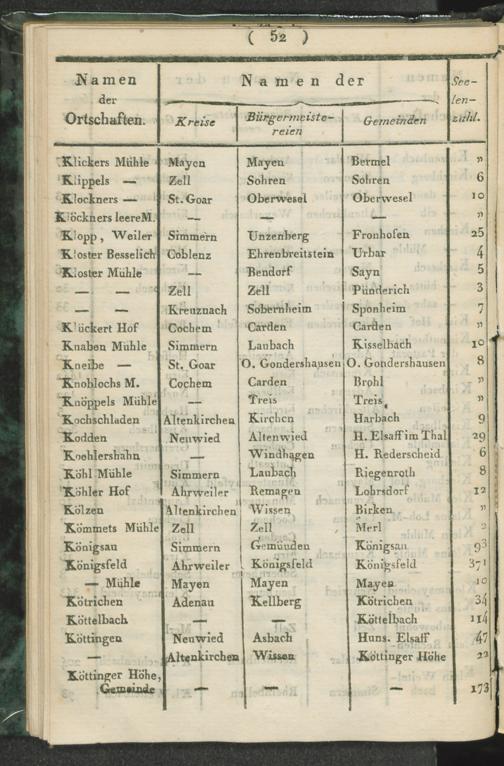 ( 52 )
Namen der Ortschaften. Namen der Seelenzahl.
Kreise Bürgermeistereien Gemeinden
Klickers Mühle Mayen Mayen Bermel "
Klippels — Zell Sohren Sohren 6
Klockners — St. Goar Oberwesel Oberwesel 10
Klöckners leere M. — — — "
Klopp, Weiler Simmern Unzenberg Fronhofen 25
Kloster Besselich Coblenz Ehrenbreitstein Urbar 4
Kloster Mühle — Bendorf Sayn 5
— — Zell Zell Pünderich 3
— — Kreuznach Sobernheim Sponheim 7
Klückert Hof Cochem Carden Carden "
Knaben Mühle Simmern Laubach Kisselbach 10
Kneibe — St. Goar O. Gondershausen O. Gondershausen 8
Knoblochs M. Cochem Carden Brohl "
Knöppels Mühle — Treis Treis "
Kochschladen Altenkirchen Kirchen Harbach 9
Kodden Neuwied Altenwied H. Elsaff im Thal 29
Koehlershahn — Windhagen H. Rederscheid 6
Köhl Mühle Simmern Laubach Riegenroth 8
Köhler Hof Ahrweiler Remagen Lohrsdorf 12
Kölzen Altenkirchen Wissen Birken "
Kömmets Mühle Zell Zell Merl 2
Königsau Simmern Gemünden Königsau 93
Königsfeld Ahrweiler Königsfeld Königsfeld 371
— Mühle Mayen Mayen Mayen 10
Kötrichen Adenau Kellberg Kötrichen 34
Köttelbach — — Köttelbach 114
Köttingen Neuwied Asbach Huns. Elsaff 47
— Altenkirchen Wissen Köttinger Höhe 22
Köttinger Höhe,
Gemeinde — — — 173